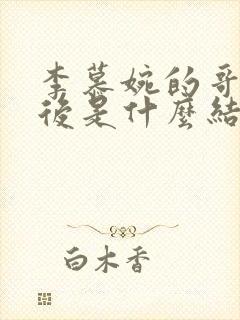 李慕婉的哥
後是什麼結
白木香